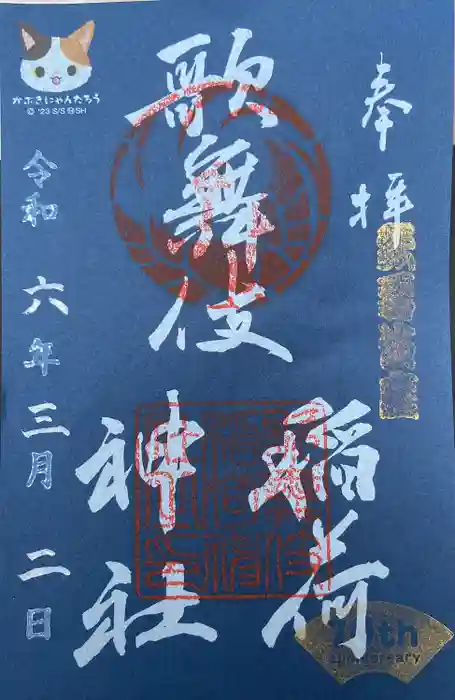 奉拝
歌舞伎
稲荷
神社
令和 六年 三月 二日
かぶきにゃんたろう
© '23 S/S・SH
th
anniversary